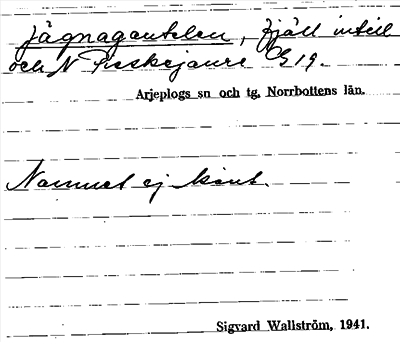 Jägnagautelen, fjäll intill
och N Pieskejaure Cg 19.
Arjeplogs sn och tg, Norrbottens län.
Namnet ej känt.
Sigvard Wallström, 1941.